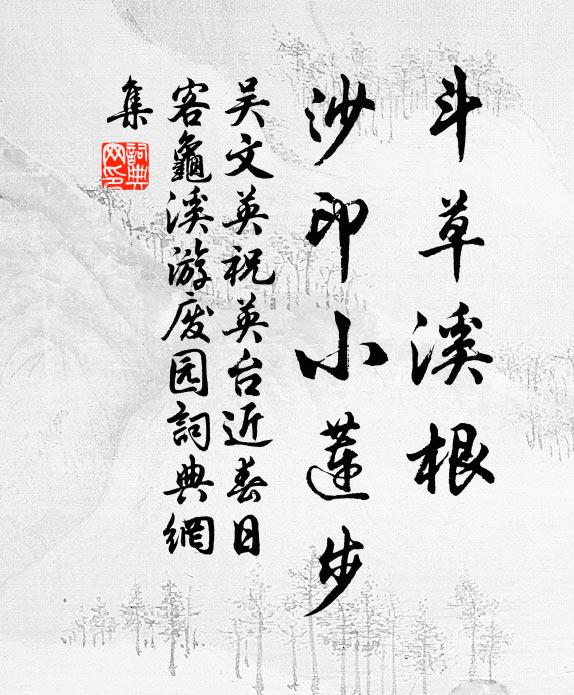 斗草溪根
沙印小蓮步
吴文英祝英台近春日
客龜溪游废园詞典網
集
詞典
网印